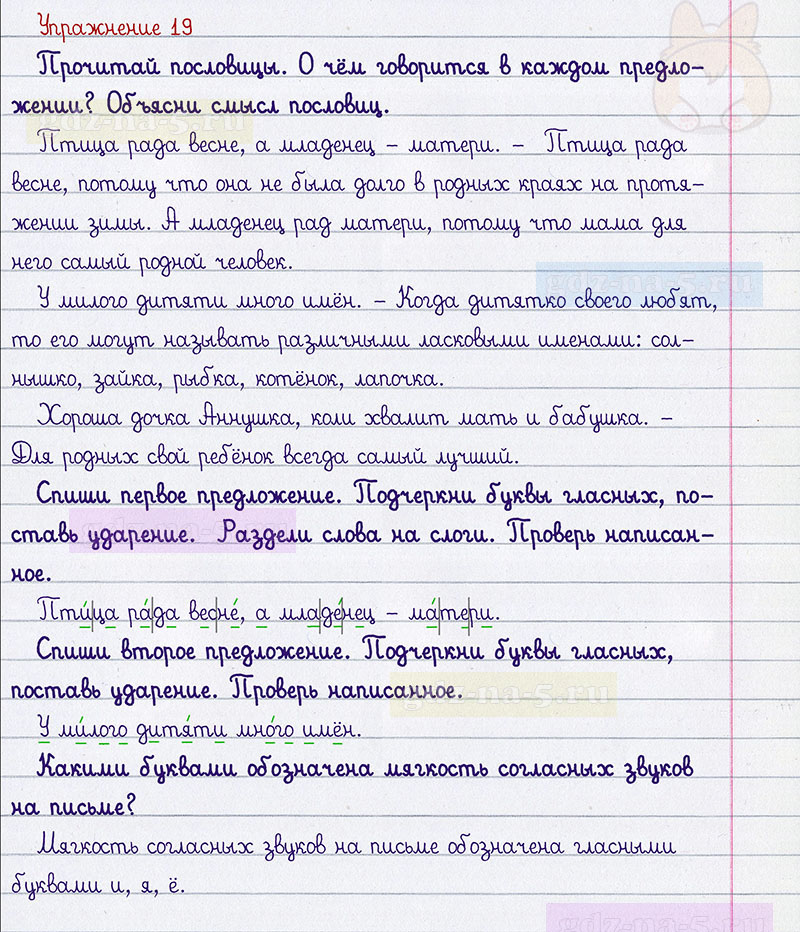 Упражнение 19
Прочитай пословицы. О чём говорится в каждом предло-
жении? Объясни смысл пословиц.
gdz-na-5.ru
Птица рада весне, а младенец – матери. – Птица рада
весне, потому что она не была долго в родных краях на протя-
жении зимы. А младенец рад матери, потому что мама для
него самый родной человек.
gdz-na-5.ru
У милого дитяти много имён. – Когда дитятко своего любят,
то его могут называть различными ласковыми именами: сол-
нышко, зайка, рыбка, котёнок, лапочка.
Хороша дочка Аннушка, коли хвалит мать и бабушка. –
Для родных свой ребёнок всегда самый лучший.
Спиши первое предложение. Подчеркни буквы гласных, по-
ставь ударение. Раздели слова на слоги. Проверь написан-
ное.
Пти́|ца ра́|да вес|не́, а мла|де́|нец – ма́|те|ри.
Спиши второе предложение. Подчеркни буквы гласных,
поставь ударение. Проверь написанное.
gdz-na-5.ru
У ми́лого дитя́ти мно́го имён.
Какими буквами обозначена мягкость согласных звуков
на письме?
Мягкость согласных звуков на письме обозначена гласными
буквами и, я, ё.
gdz-na-5.ru